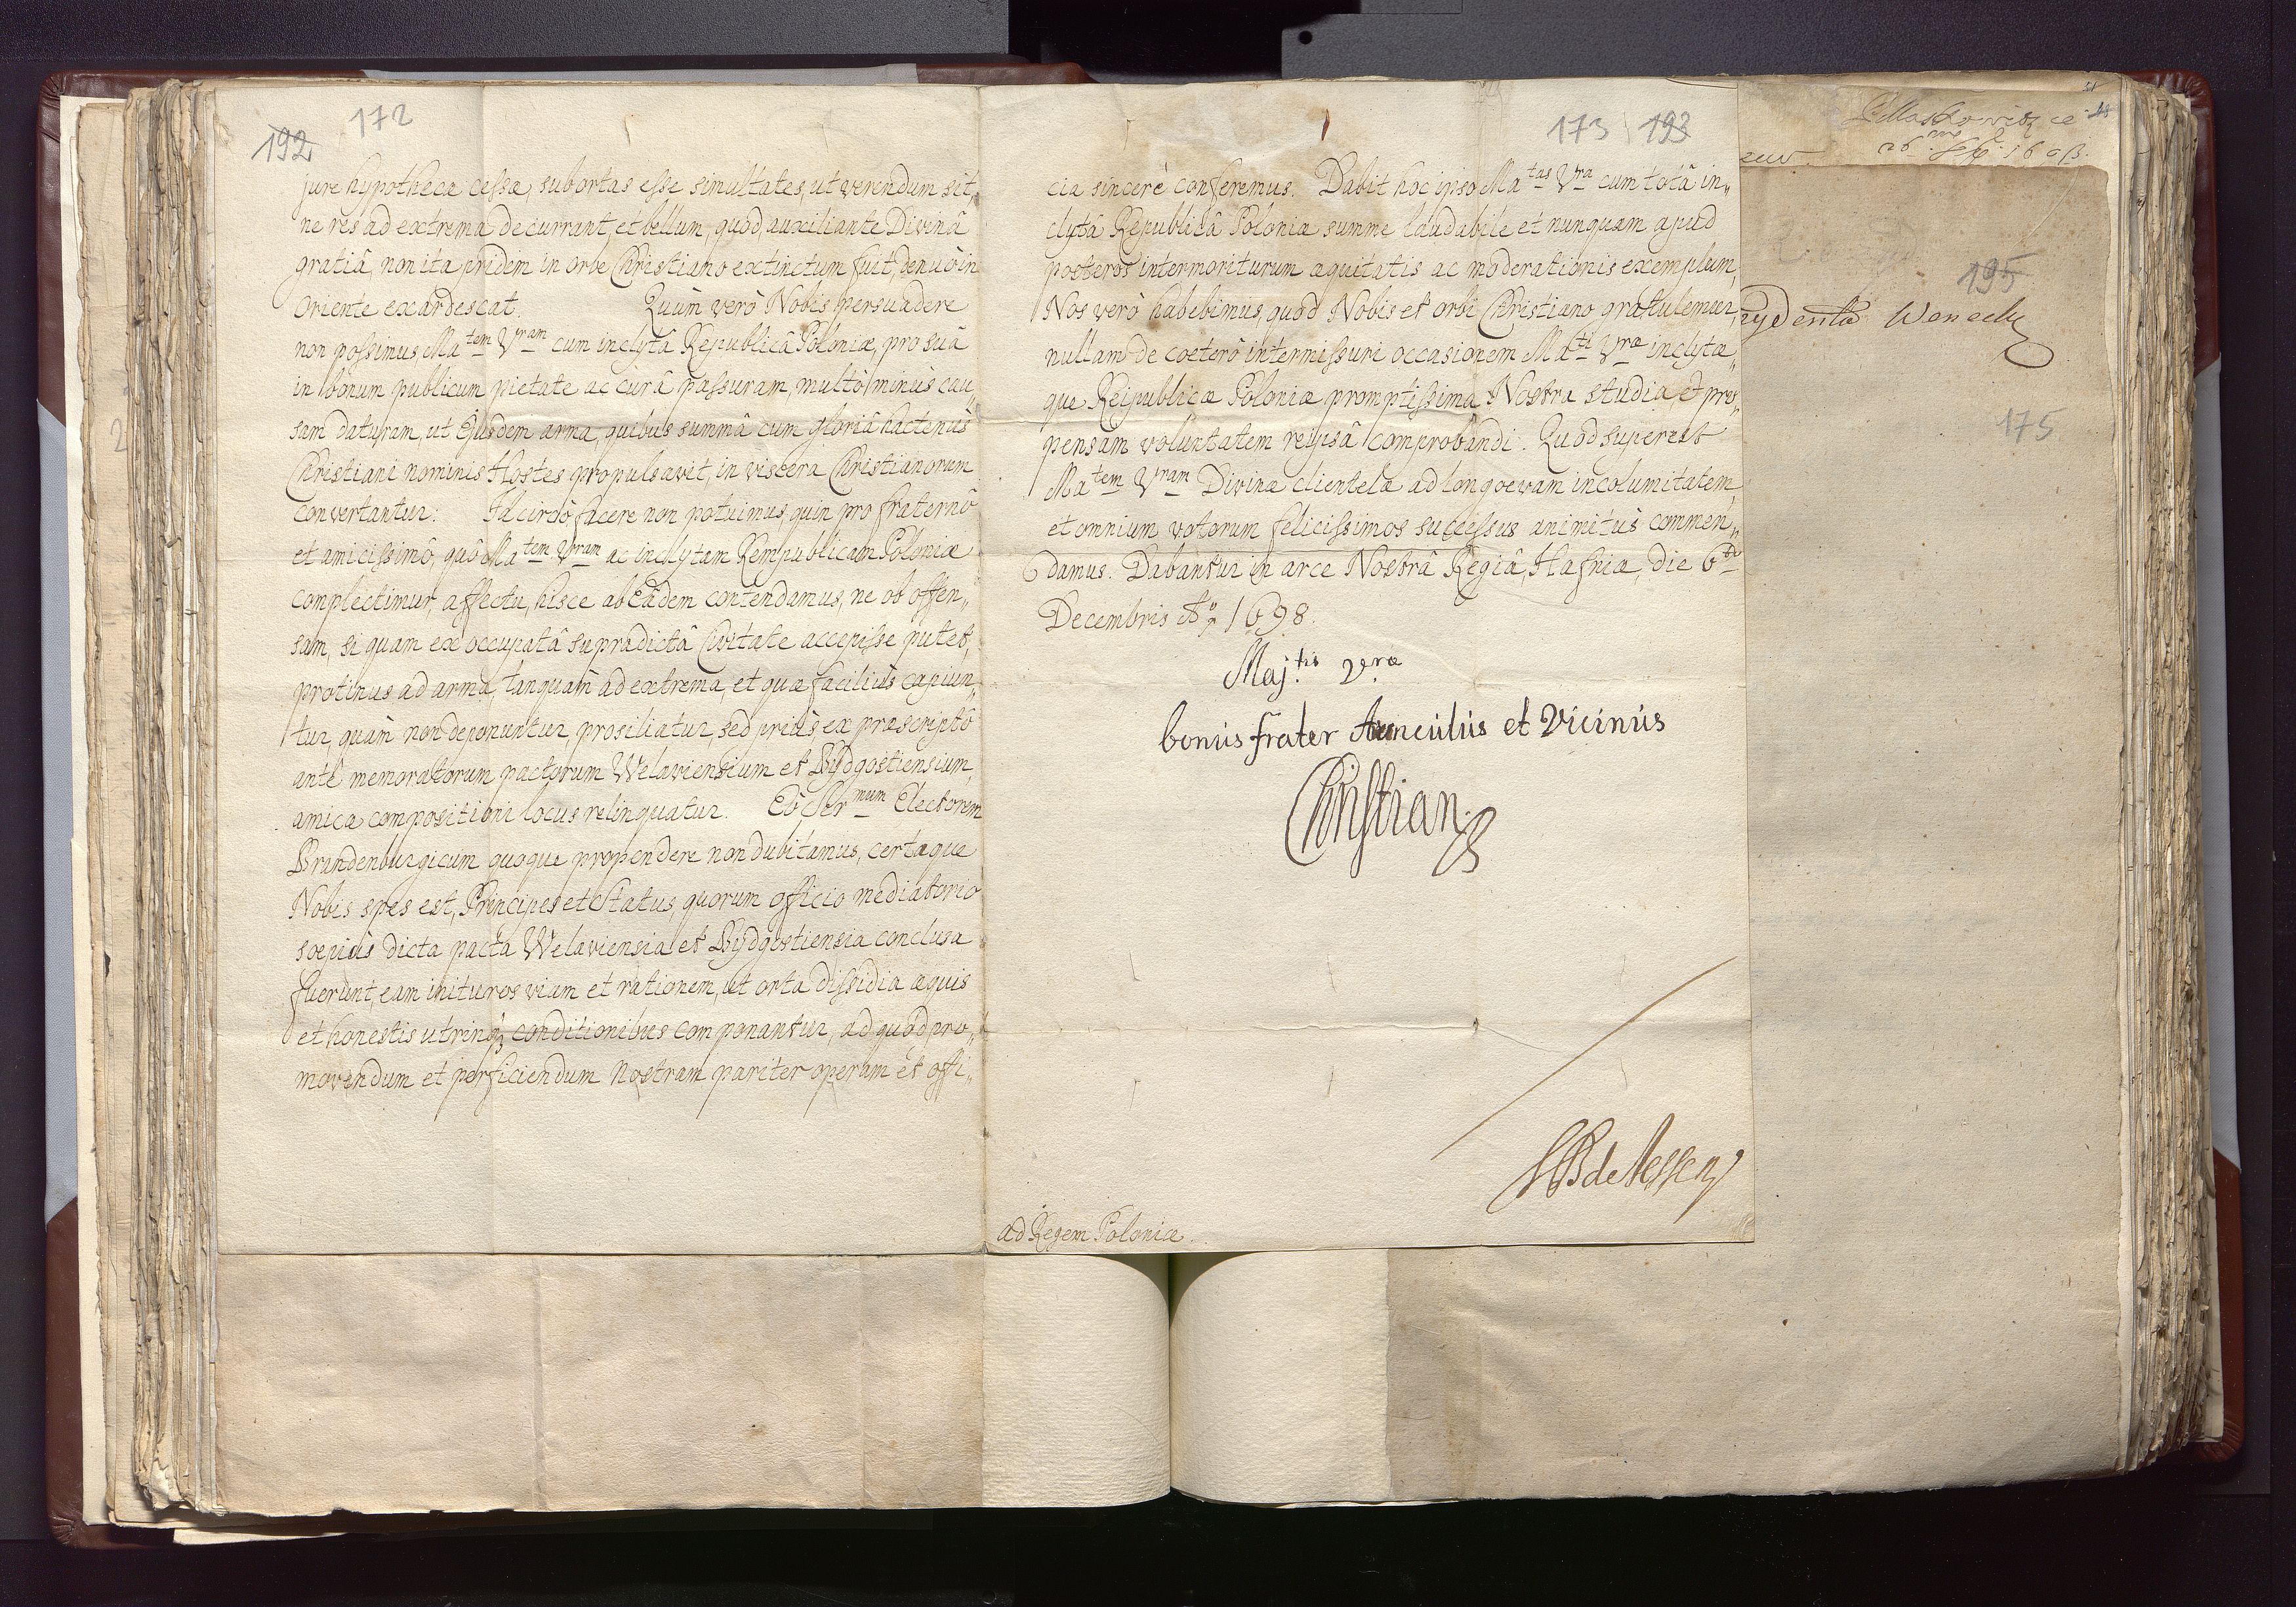 172
192
jure hypothecæ cessæ, subortas esse simultates, ut verendum sit,
ne res ad extrema decurrant, et bellum, quod, auxiliante Divinâ
gratiâ, non ita pridem in orbe Christiano extinctum fuit, denuò in
Oriente exardescat. Quùm verò Nobis persuadere
non possimus Ma<sup>tem</sup> Vram cum inclytâ Republicâ Poloniæ, pro suâ
in bonum publicum pietate ac curâ passuram, multò minùs cau„
sam daturam, ut Ejusdem arma, quibus summâ cum gloriâ hactenùs
Christiani nominis Hostes propulsavit, in viscera Christianorum
convertantur: Idcircò facere non potuimus, quin pro fraternô
et amicissimô, quô Ma<sup>tem</sup> Vram ac inclytam Rempublicam Poloniæ
complectimur, affectu, hisce ab Eâdem contendamus, ne ob offen„
sam, si quam ex occupatâ supradictâ Civitate accepisse putet,
protinus ad arma, tanquam ad extrema, et quæ faciliùs capiun„
tur, quàm non deponuntur, prosiliatur, sed priùs ex præscriptô
antè memoratorum pactorum Welaviensium et Bÿdgostiensium,
amicæ compositioni locus relinquatur. Eò Ser<sup>mum</sup> Electorem
Brandenburgicum quoque propendere non dubitamus, certaque
Nobis spes est, Principes et Status, quorum officio mediatorio
sœpiùs dicta pacta Welaviensia et Bÿdgostiensia conclusa
fuerunt, eam inituros viam et rationem, ut orta dissidia æquis
et honestis utrinq; conditionibus componantur, ad quod pro„
movendum et perficiendum Nostram pariter operam et offi„
173 193
cia sincerè conferemus. Dabit hoc ipso Ma<sup>tas</sup> Vra cum totâ in„
clytâ Republicâ Poloniæ summe laudabile et nunquam apud
posteros intermoriturum æquitatis ac moderationis exemplum,
Nos verò habebimus, quod Nobis et orbi Christiano gratulemur,
nullam de cœterò intermissuri occasionem Ma<sup>ti</sup> Vræ inclytæ„
que Reipublicæ Poloniæ promptissima Nostra studia, et pro„
pensam voluntatem reipsâ comprobandi. Quod superest
Ma<sup>tem</sup> Vram Divinæ clientelæ ad longœvam incolumitatem,
et omnium votorum felicissimos successus animitùs commen„
damus. Dabantur in arce Nostrâ Regiâ, Hafniæ, die 6<sup>ta</sup>
Decembris Aº 1698.
Maj<sup>tis</sup> V<sup>ræ</sup>
bonus frater Avunculus et Vicinus
Christian
de Jessen
ad Regem Poloniæ.
195
Wenecky
175